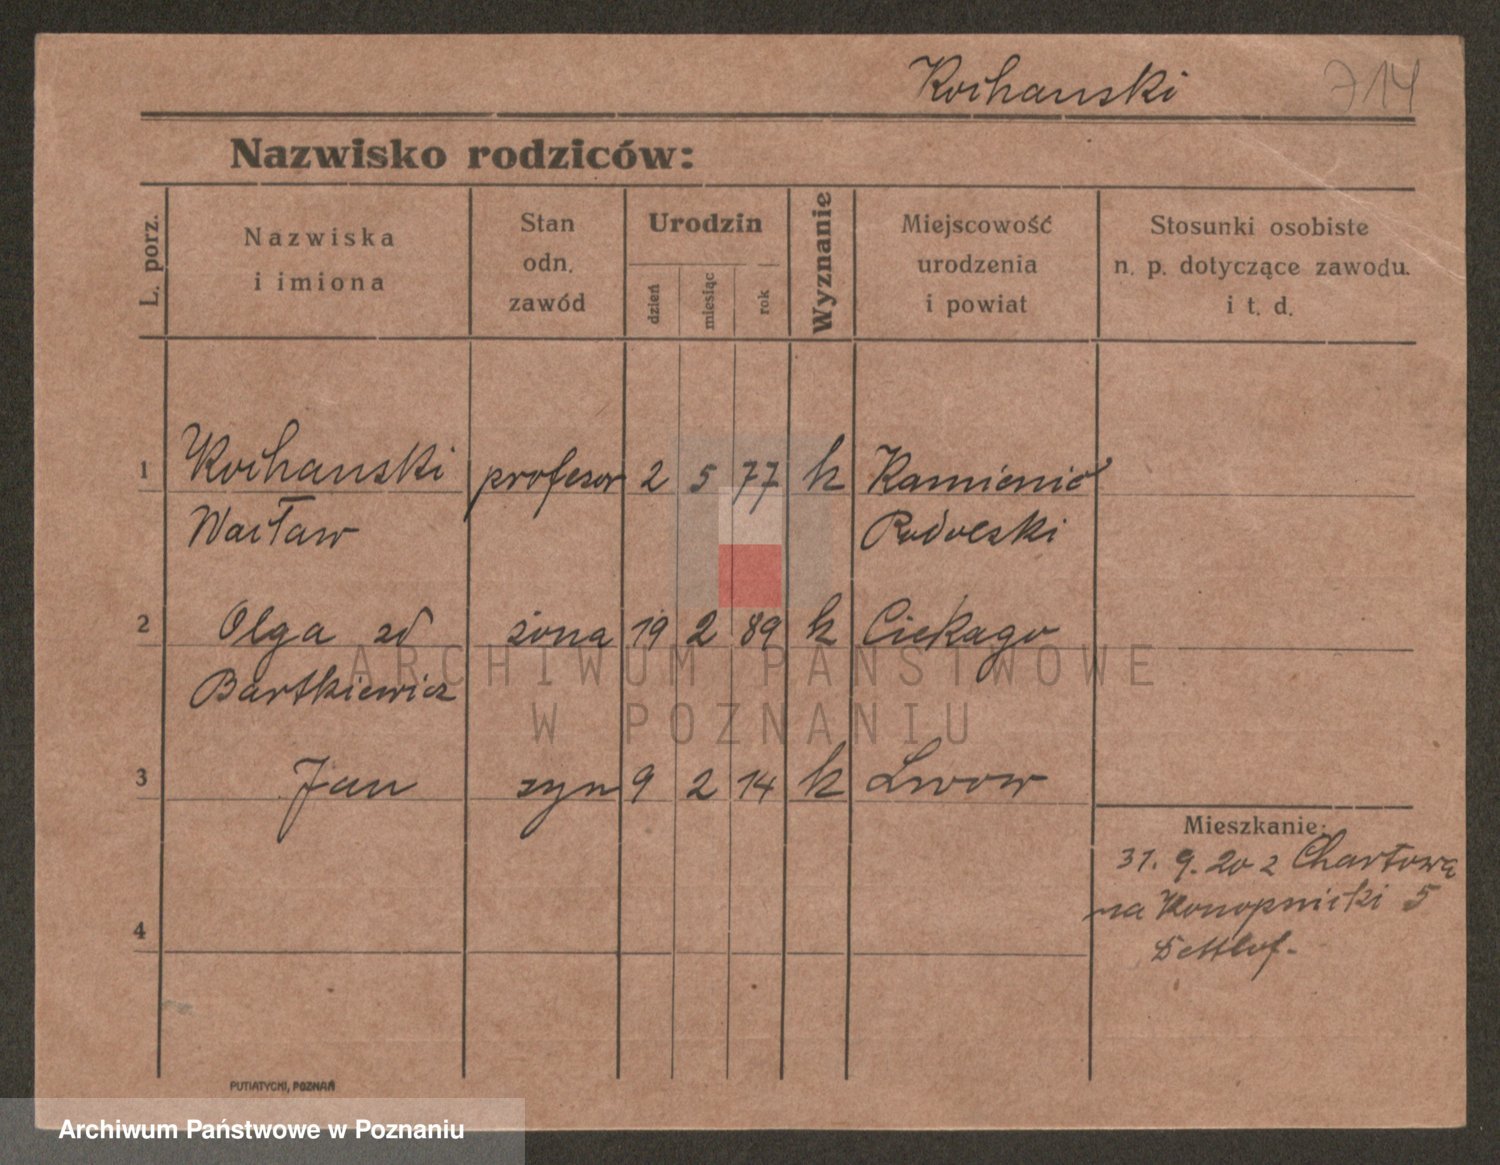 Kochanski 714
Nazwisko rodziców:
L. porz.
Nazwiska
i imiona
Stan
odn.
zawód
Urodzin
dzień
miesiąc
rok
Wyznanie
Miejscowość
urodzenia
i powiat
Stosunki osobiste
n. p. dotyczące zawodu.
i t. d.
1 Kochanski profesor 2 5 77 k Kamieniec
Wacław Podolski
2 Olga zd żona 19 2 89 k Cickago
Bartkiewicz
3 Jan syn 9 2 14 k Lwow
Mieszkanie:
31. 9. 20 z Chartowa
na Konopnicki 5
4
PUTIATYCKI, POZNAŃ
ARCHIWUM PAŃSTWOWE
W POZNANIU
Archiwum Państwowe w Poznaniu